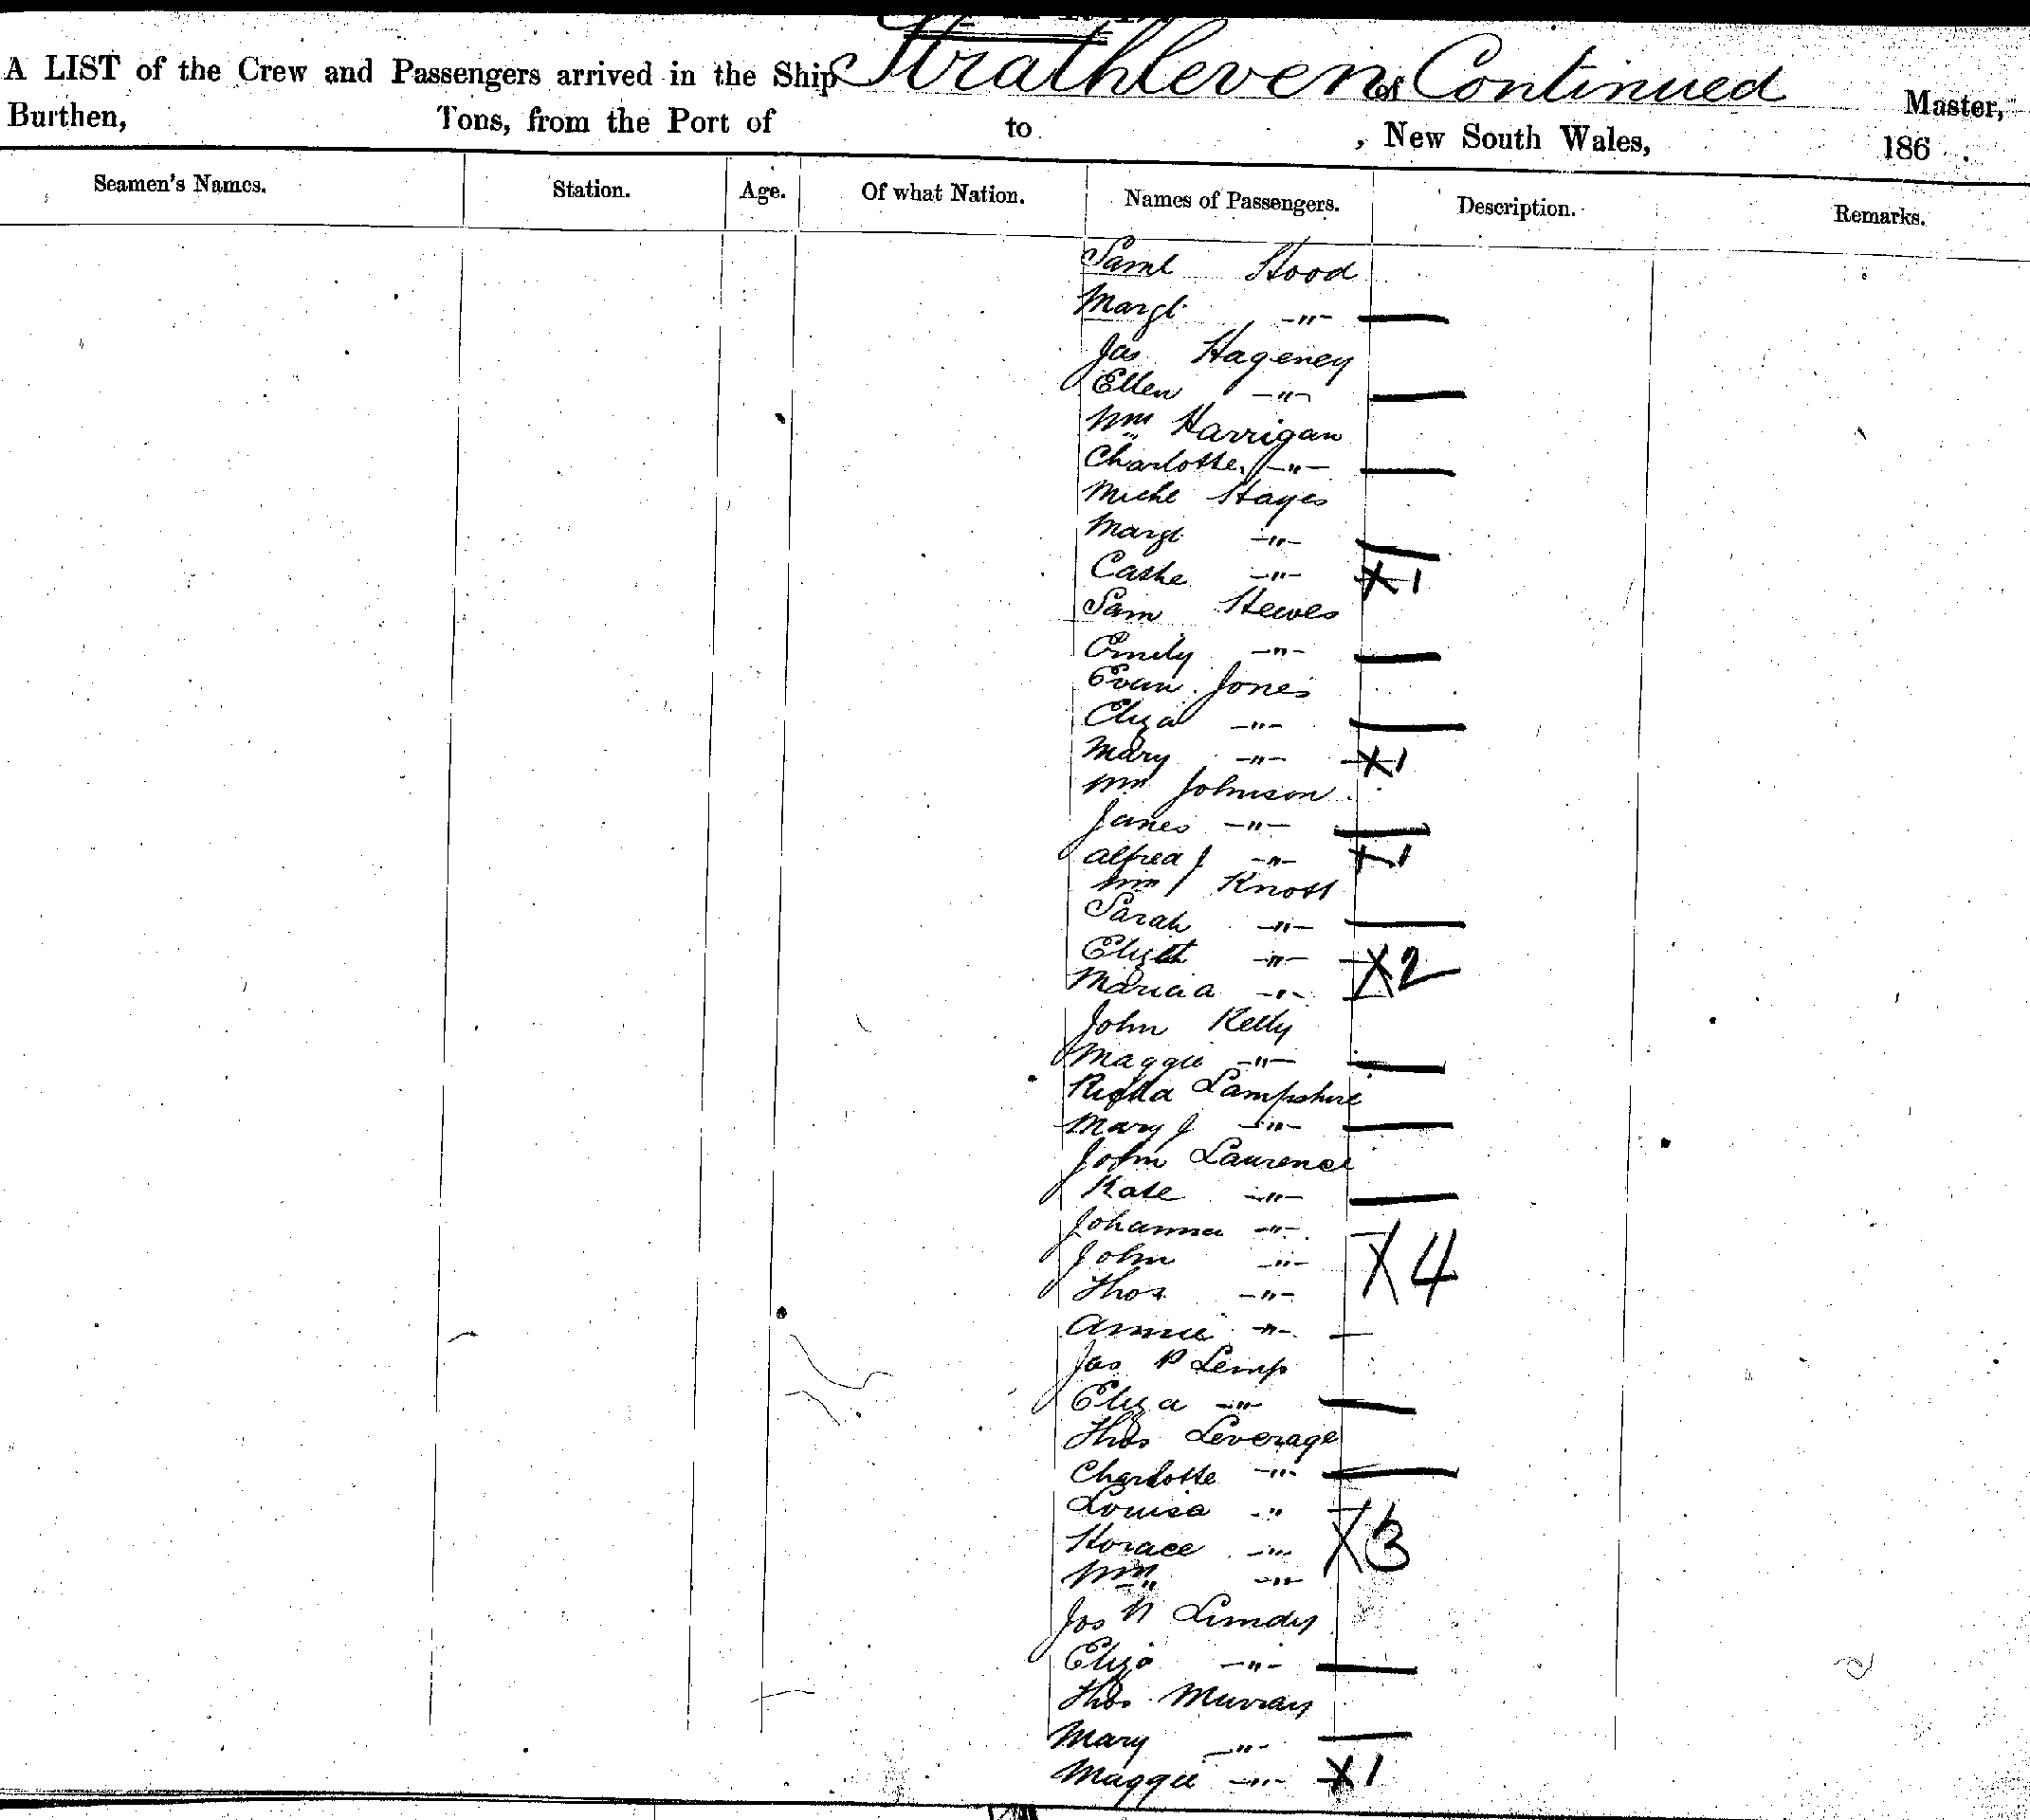 A LIST of the Crew and Passengers arrived in the Ship Strathleven of Continued Master,
Burthen, Tons, from the Port of to , New South Wales, 186 .
Seamen's Names. Station. Age. Of what Nation. Names of Passengers. Description. Remarks.
Saml Hood
Margt -"-
Jas Hageney
Ellen -"-
Wm Harrigan
Charlotte -"-
Michl Hayes
Margt -"-
Cathe -"- X1
Sam Hewes
Emily -"-
Evan Jones
Eliza -"-
Mary -"- X1
Wm Johnson
Janes -"-
Alfred J -"- X1
Wm J Knott
Sarah -"-
Elizth -"- X2
Maria a -"-
John Kelly
Maggie -"-
Lampshire
Mary J -"-
John Laurence
Kate -"-
Johanna -"-
John -"- X4
Thos -"-
Annie -"-
Jas P Lemp
Eliza -"-
Thos Leverage
Charlotte -"-
Louisa -"-
Horace -"- X3
Wm -"-
Jos N Limdy
Eliza -"-
Thos Murray
Mary -"-
Maggie -"- X1